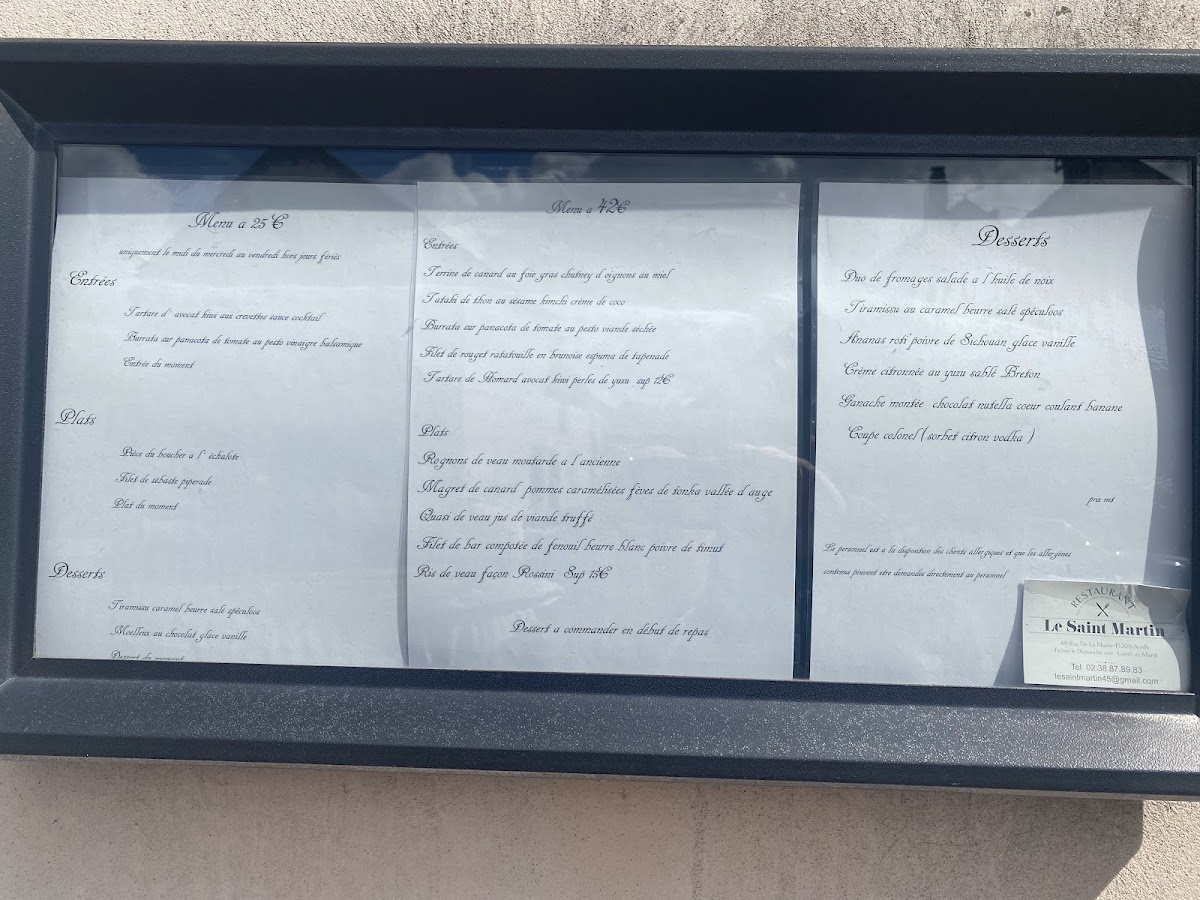 Menu a 25 €
uniquement le midi du mercredi au vendredi hors jours fériés
Entrées
Tartare d' avocat kiwi aux crevettes sauce cocktail
Burrata sur panacota de tomate au pesto vinaigre balsamique
Entrée du moment
Plats
Pièce du boucher a l' échalote
Filet de sébaste piperade
Plat du moment
Desserts
Tiramissu caramel beurre salé spéculoos
Moelleux au chocolat glace vanille
Dessert du moment
Menu a 42€
Entrées
Terrine de canard au foie gras chutney d'oignons au miel
Tataki de thon au sésame kimchi crème de coco
Burrata sur panacota de tomate au pesto viande séchée
Filet de rouget ratatouille en brunoise espuma de tapenade
Tartare de Homard avocat kiwi perles de yuzu sup 12€
Plats
Rognons de veau moutarde a l'ancienne
Magret de canard pommes caramélisées fèves de tonka vallée d'auge
Quasi de veau jus de viande truffé
Filet de bar compotée de fenouil beurre blanc poivre de timut
Ris de veau façon Rossini Sup 15€
Dessert a commander en début de repas
Desserts
Duo de fromages salade a l'huile de noix
Tiramissu au caramel beurre salé spéculoos
Ananas roti poivre de Sichouan glace vanille
Crème citronnée au yuzu sablé Breton
Ganache montée chocolat nutella coeur coulant banane
Coupe colonel ( sorbet citron vodka )
prix net
Le personnel est a la dispotion des clients allergiques et que les allergènes
contenus peuvent etre demandés directement au personnel
RESTAURANT
Le Saint Martin
Tel 02.38.87.89.83
lesaintmartin45@gmail.com